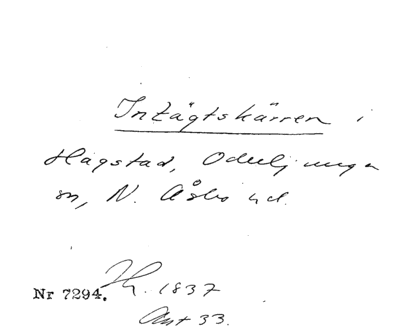 Intägtskärren i
Hägstad, Oderljunga
sn, N. Åsbo hd.
Nr 7294. 1837
Akt 33.